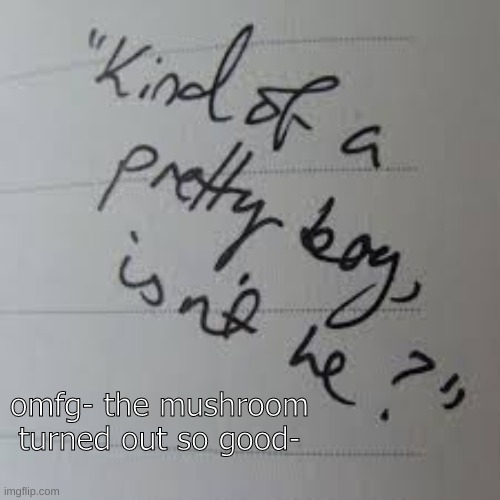 "Kind of a
pretty boy,
isn't he?"
omfg- the mushroom
turned out so good-
imgflip.com